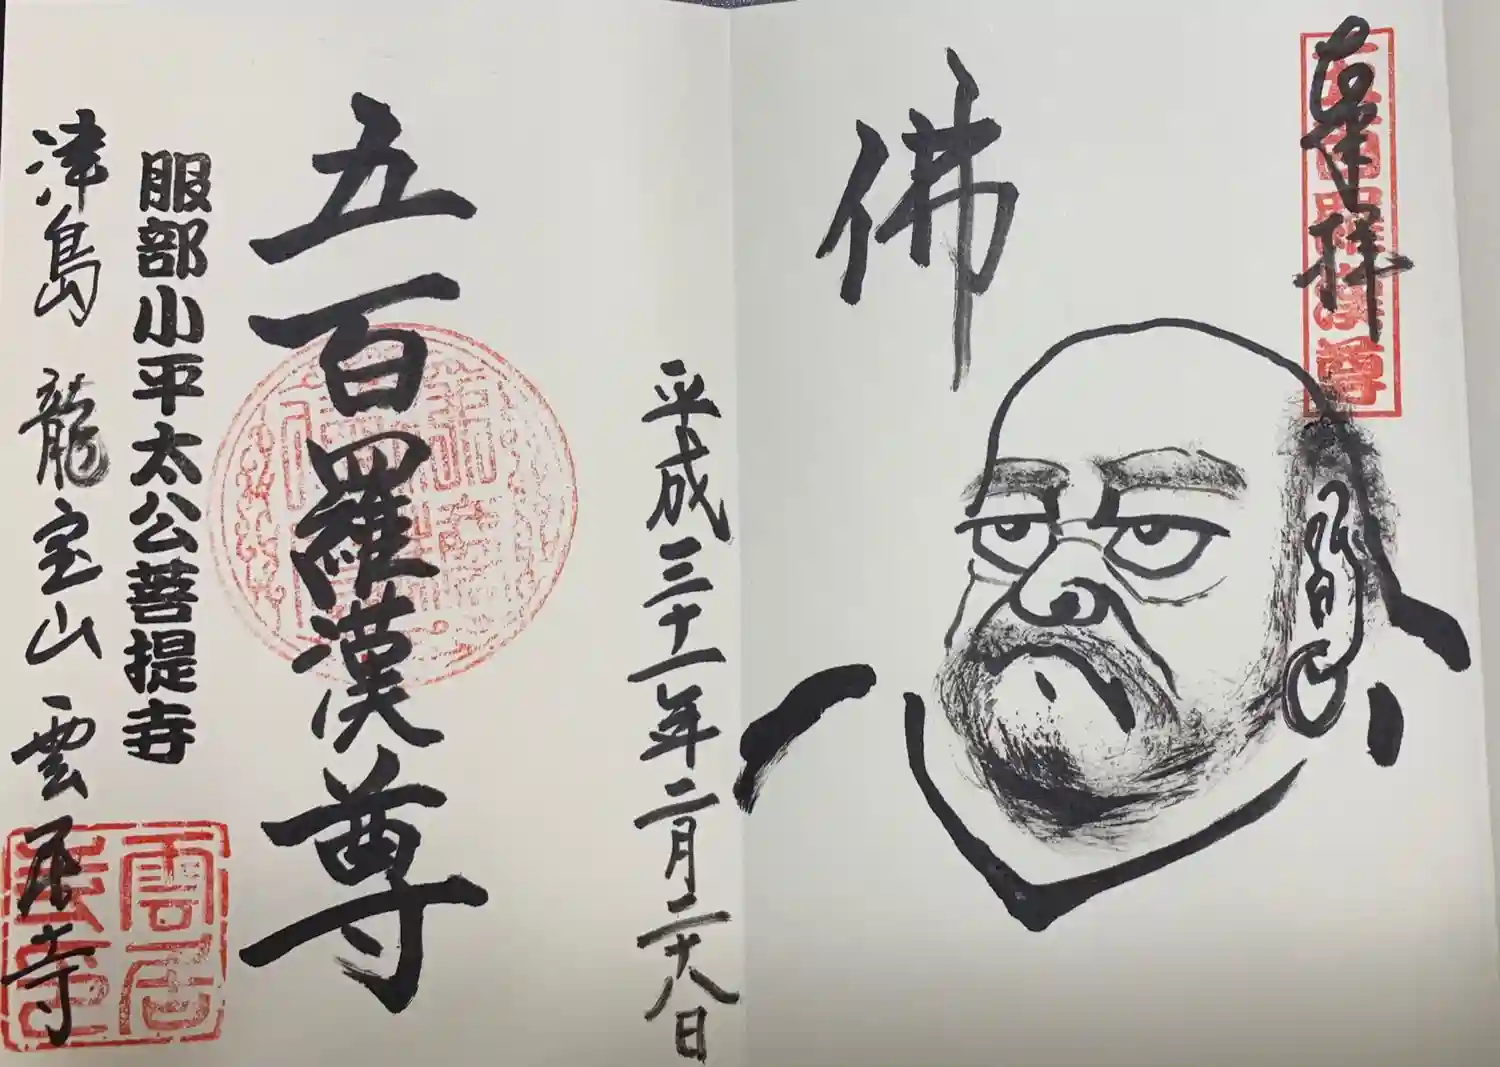 奉拝
五百羅漢尊
佛
平成三十一年二月二十八日
五百羅漢尊
服部小平太公菩提寺
津島 龍宝山 雲居寺
雲居